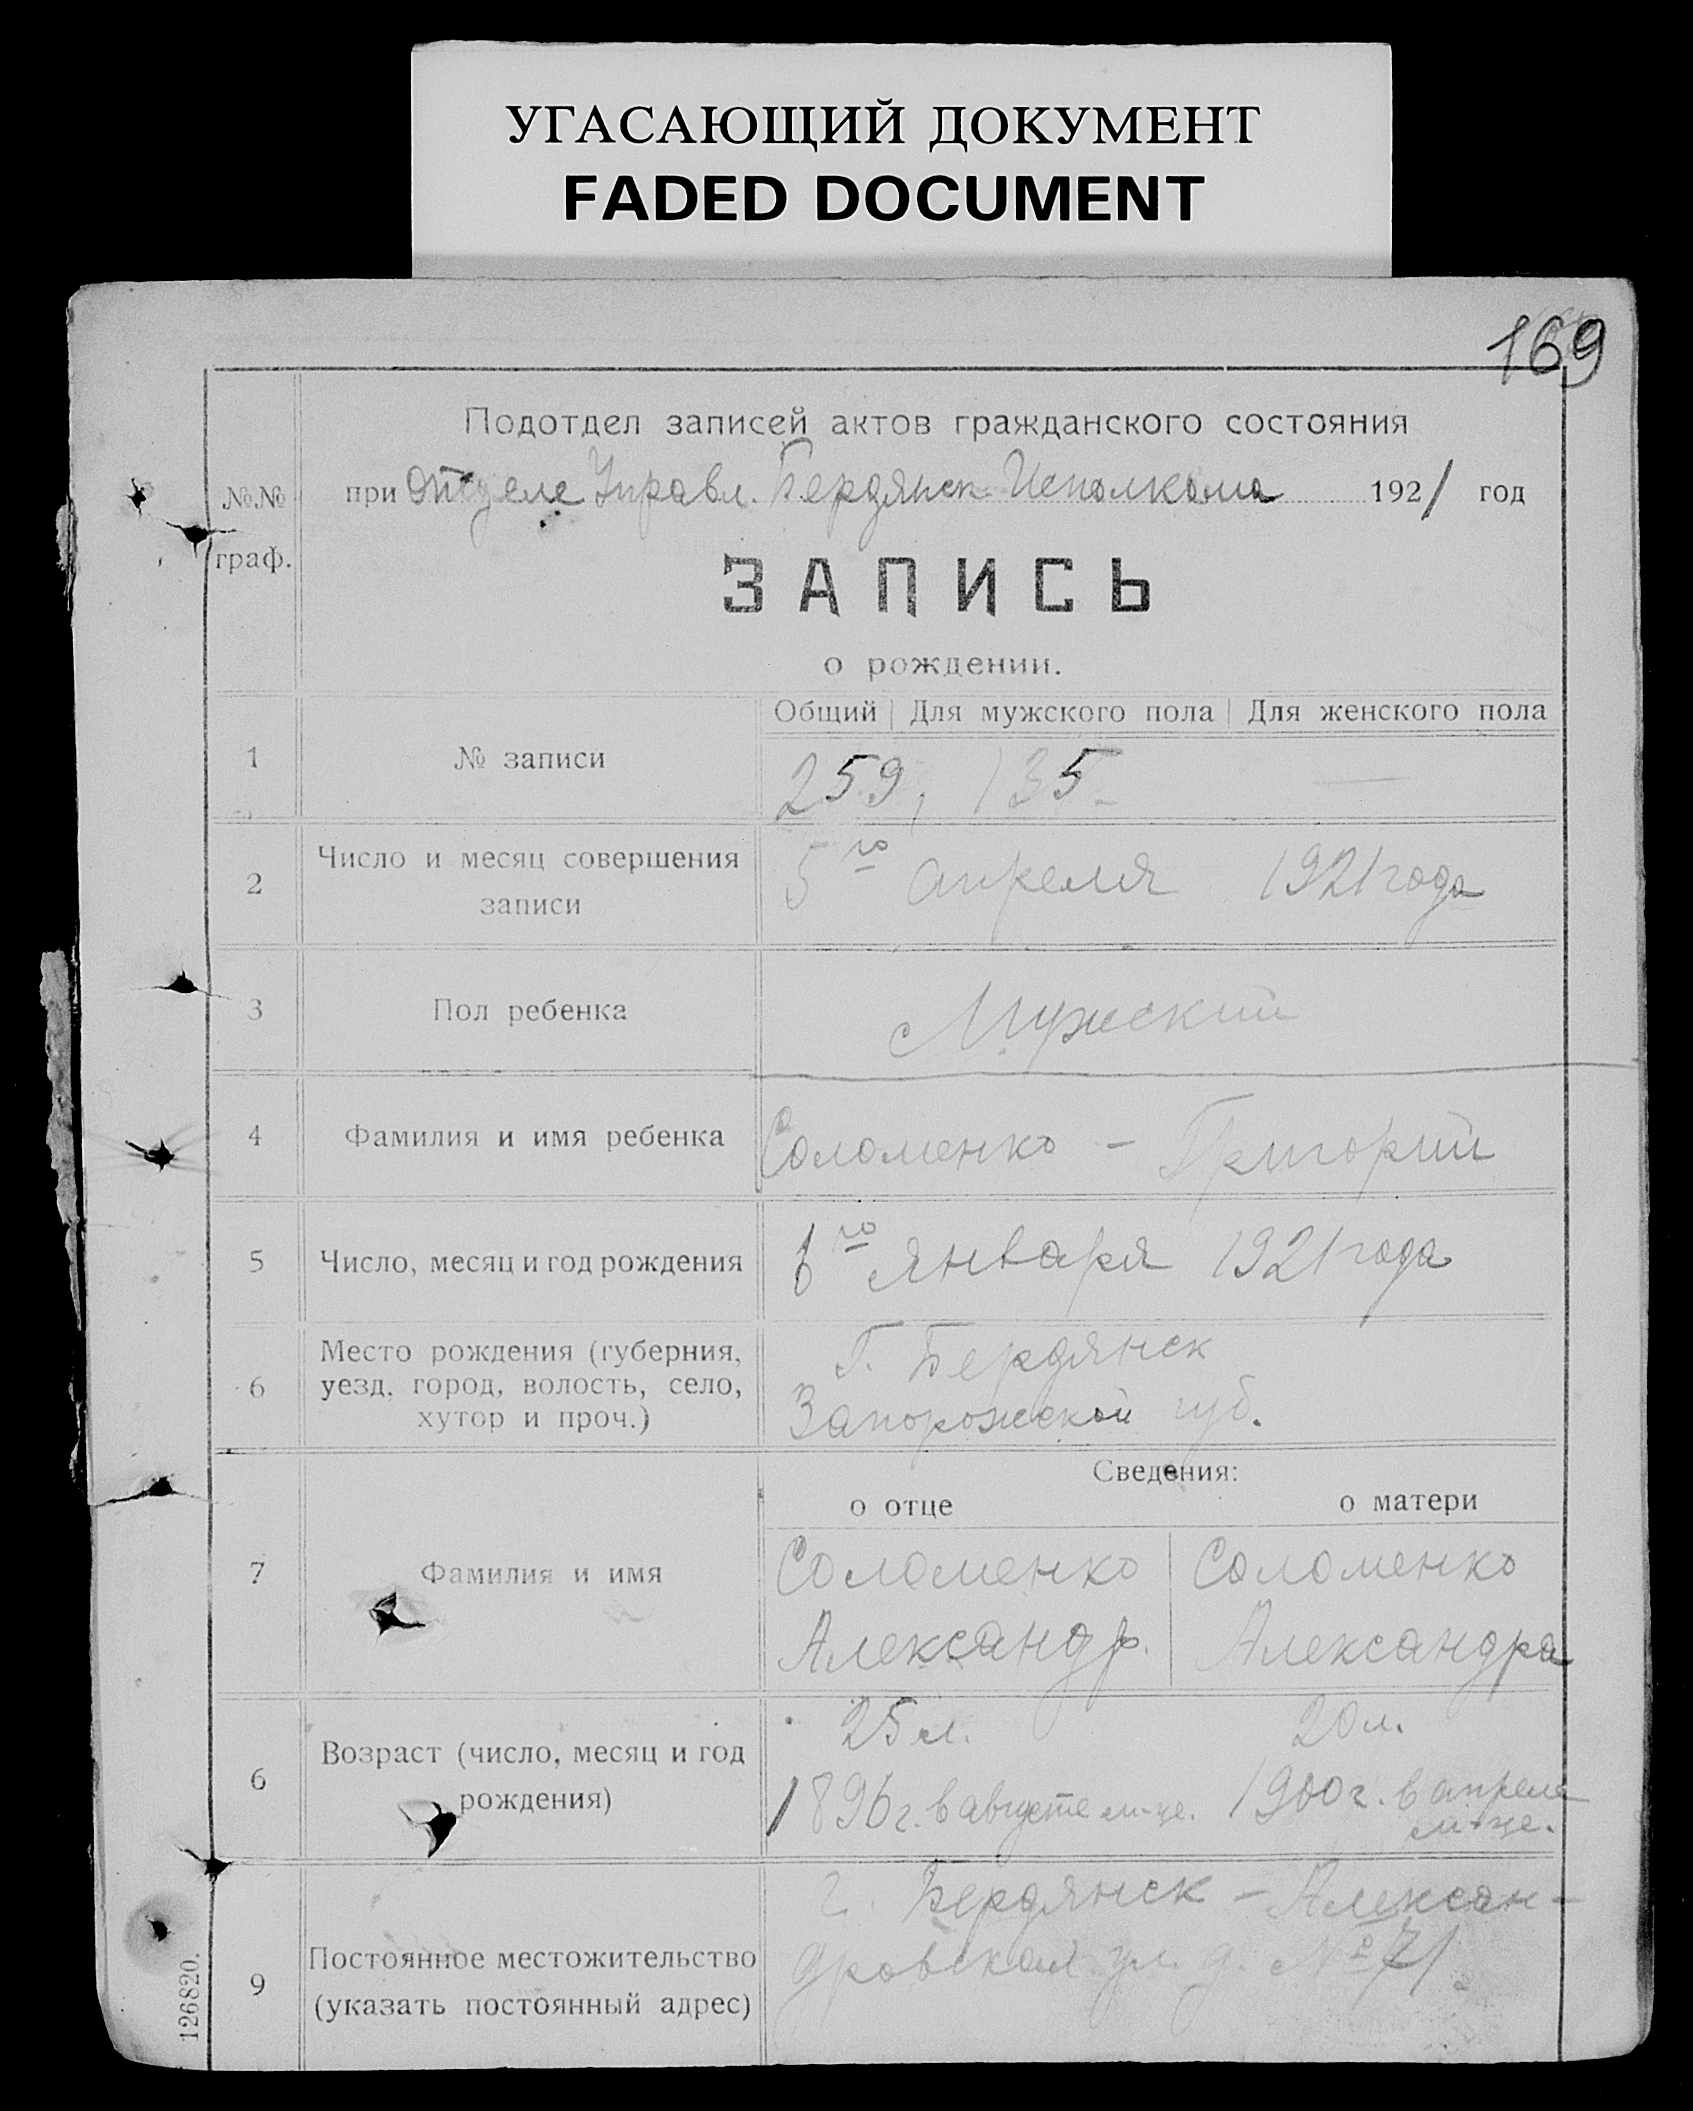 УГАСАЮЩИЙ ДОКУМЕНТ
FADED DOCUMENT
169
Подотдел записей актов гражданского состояния
№№ граф.
при Отделе Управл. Бердянск. Исполкома 1921 год
ЗАПИСЬ
о рождении.
Общий | Для мужского пола | Для женского пола
1 № записи 259, 135 —
2 Число и месяц совершения
записи
5го апреля 1921 года
3 Пол ребенка Мужский
4 Фамилия и имя ребенка Соломенко – Григорий
5 Число, месяц и год рождения 6го января 1921 года
6 Место рождения (губерния,
уезд, город, волость, село,
хутор и проч.)
Г. Бердянск
Запорожской губ.
Сведения:
о отце о матери
7 Фамилия и имя
Соломенко Соломенко
Александр. Александра
6 Возраст (число, месяц и год
рождения)
25 л. 20 л.
1896 г. в августе м-це. 1900 г. в апреле
м-це.
9 Постоянное местожительство
(указать постоянный адрес)
г. Бердянск – Алексан-
дровская ул. д. № 71
126820.